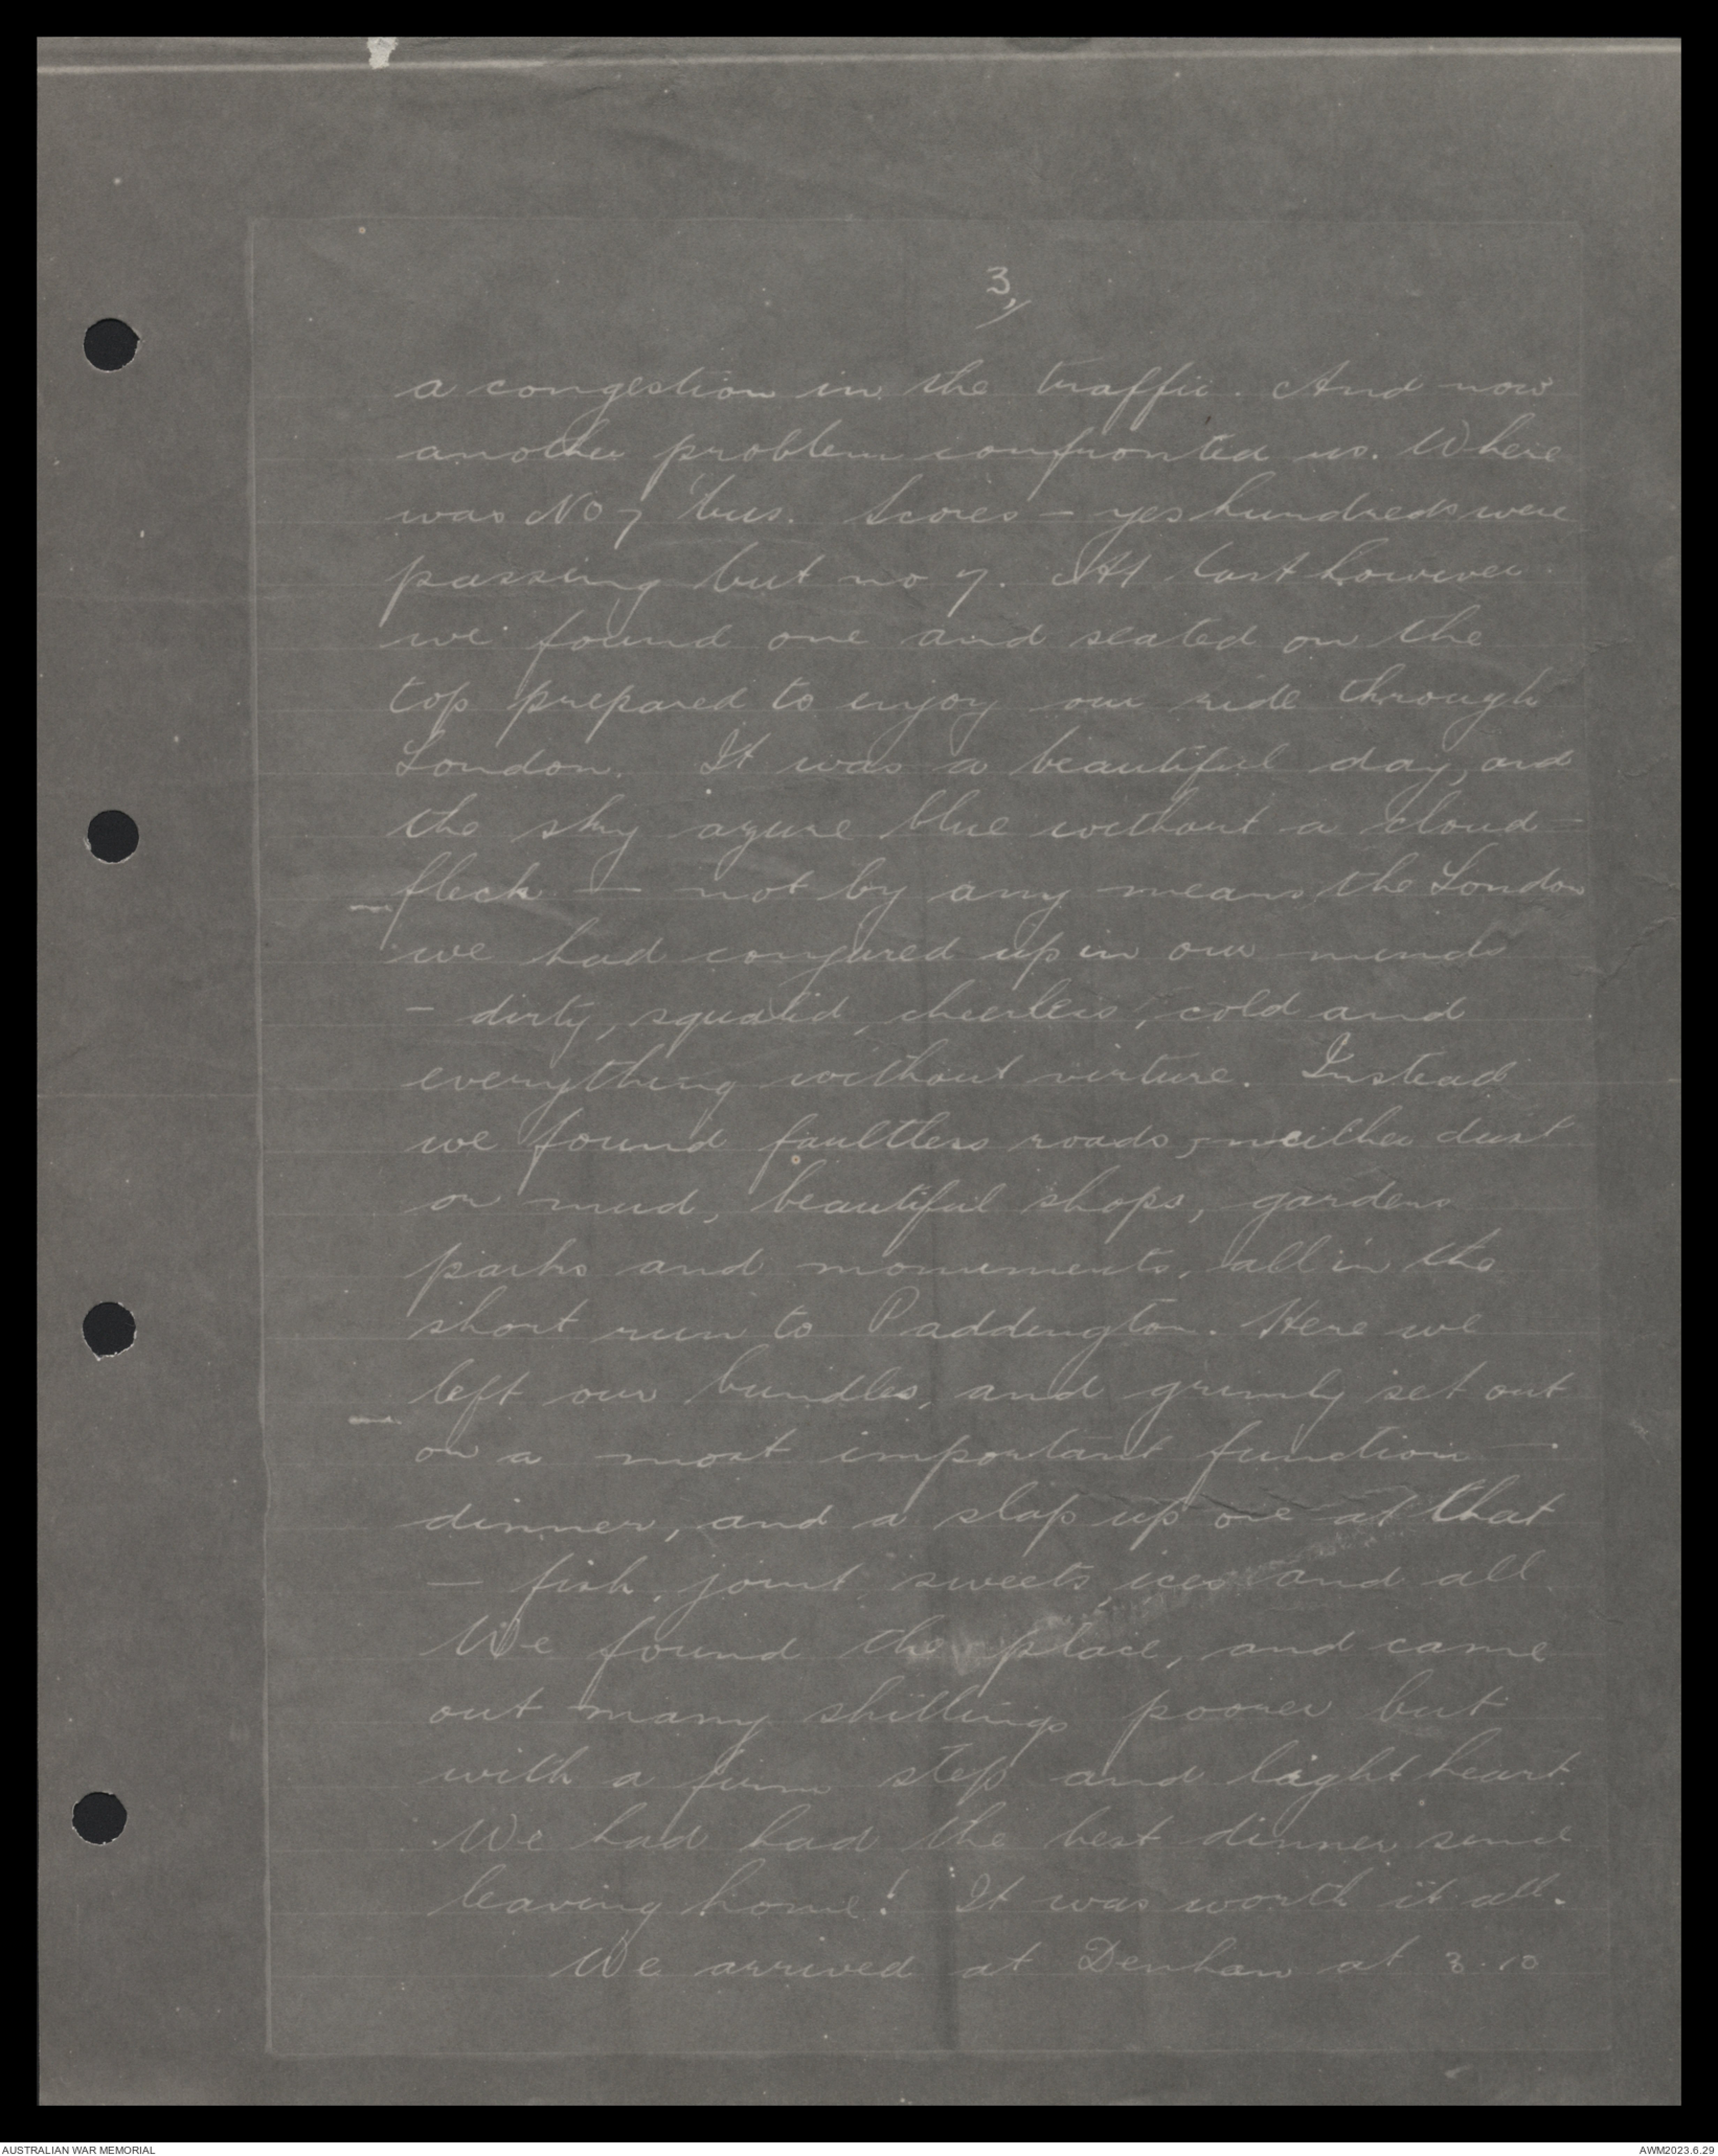 3/
a congestion in the traffic. And now
another problem confronted us. Where
was No 7 'bus. Scores - yes hundreds were
passing but no 7. At last however
we found one and seated on the
top prepared to enjoy our ride through
London. It was a beautiful day, and
the sky azure blue without a cloud-
fleck - not by any means the London
we had conjured up in our minds
- dirty, squalid, cheerless, cold and
everything without virtue. Instead
we found faultless roads, neither dust
or mud, beautiful shops, gardens
parks and monuments, all in the
short run to Paddington. Here we
left our bundles, and grimly set out
on a most important function -
dinner, and a slap up one at that
- fish, joint, sweets, ices and all.
We found the place, and came
out many shillings poorer but
with a firm step and light heart.
We had had the best dinner since
leaving home! It was worth it all.
We arrived at Denham at 3.10
AUSTRALIAN WAR MEMORIAL
AWM2023.6.29